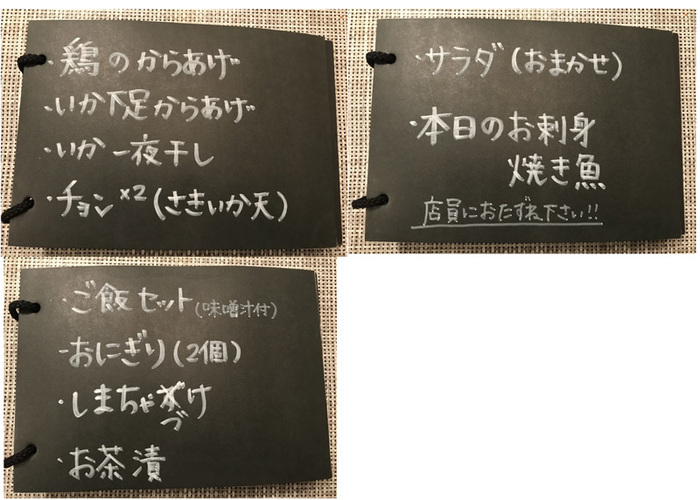 ・鶏のからあげ
・いか下足からあげ
・いか一夜干し
・チョン×2(さきいか天)
・サラダ(おまかせ)
・本日のお刺身
焼き魚
店員におたずね下さい!!
・ご飯セット(味噌汁付)
・おにぎり(2個)
・しまちゃづけ
・お茶漬